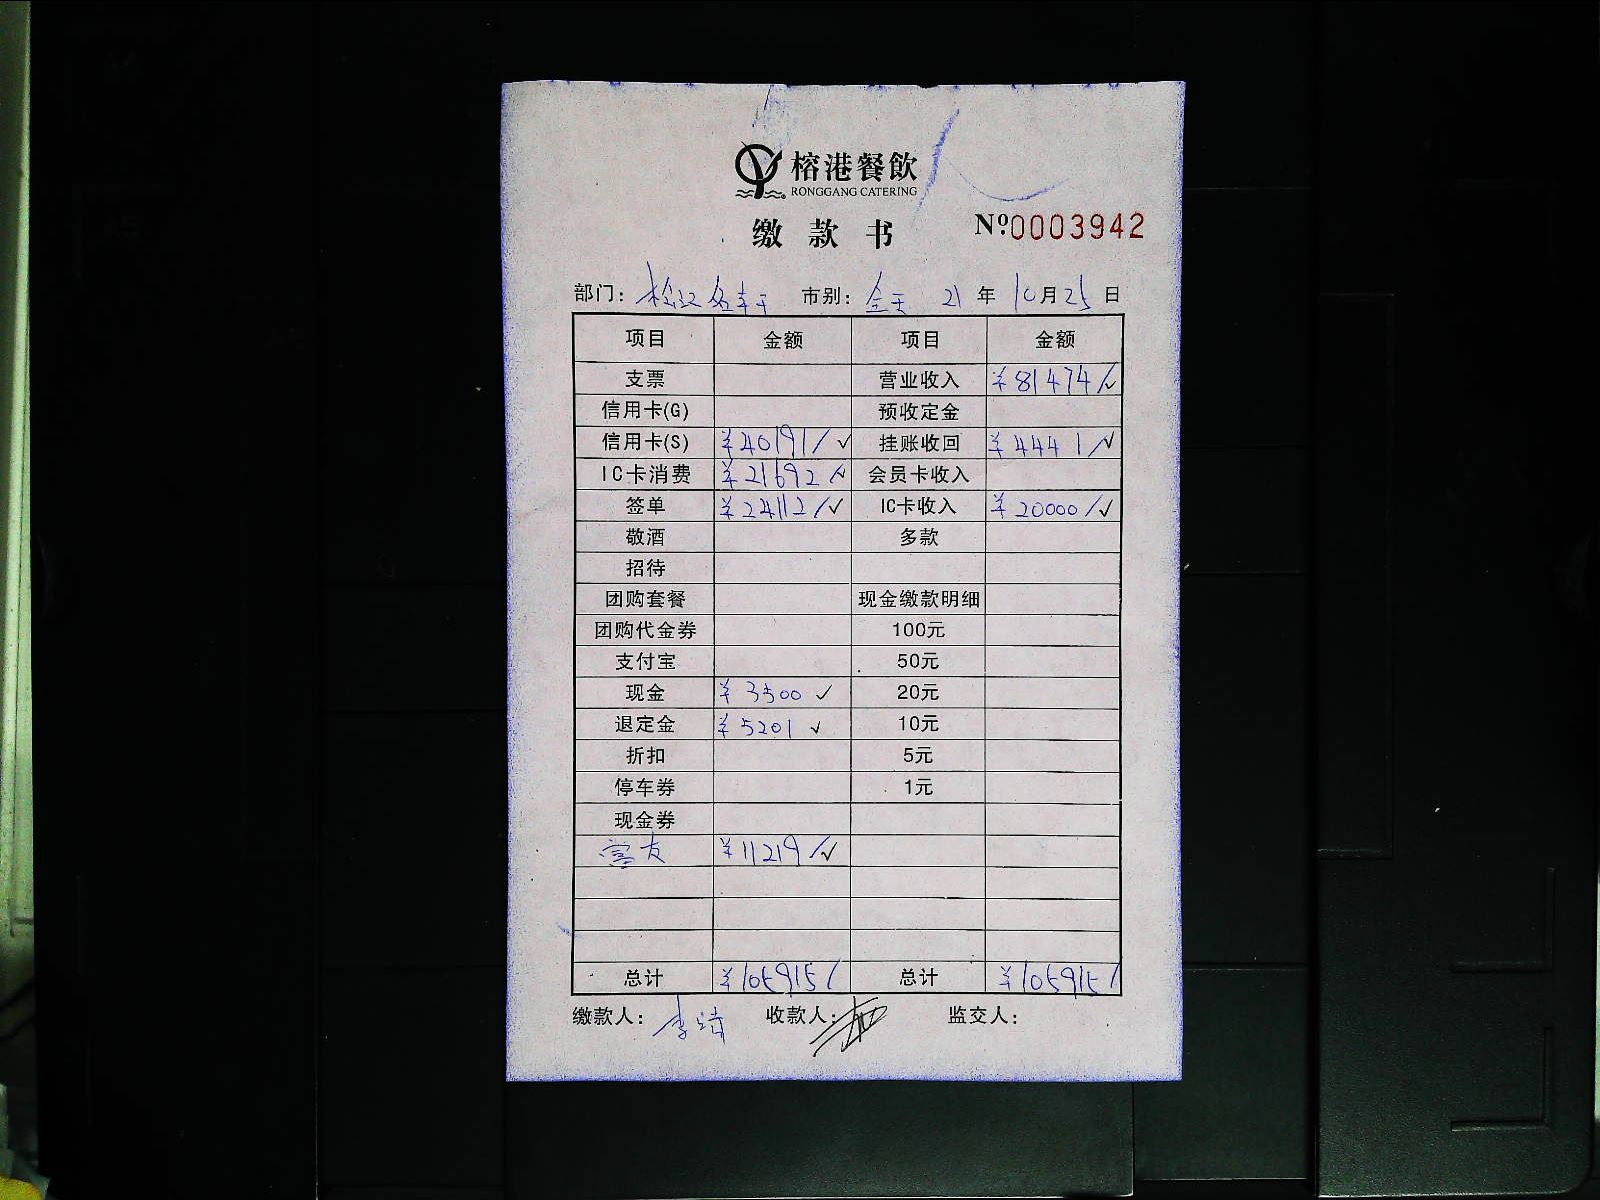 榕港餐飲
RONGGANG CATERING
缴款书 Nº:0003942
部门: 市别: 全天 21 年 10 月 25 日
项目 金额 项目 金额
支票 营业收入 ¥81474/✓
信用卡(G) 预收定金
信用卡(S) ¥40191/✓ 挂账收回 ¥4441/✓
IC卡消费 ¥21692/✓ 会员卡收入
签单 ¥24112/✓ IC卡收入 ¥20000/✓
敬酒 多款
招待
团购套餐 现金缴款明细
团购代金券 100元
支付宝 50元
现金 ¥3500 ✓ 20元
退定金 ¥5201 ✓ 10元
折扣 5元
停车券 1元
现金券
富友 ¥11219/✓
总计 ¥105915/ 总计 ¥105915/
缴款人: 收款人: 监交人: